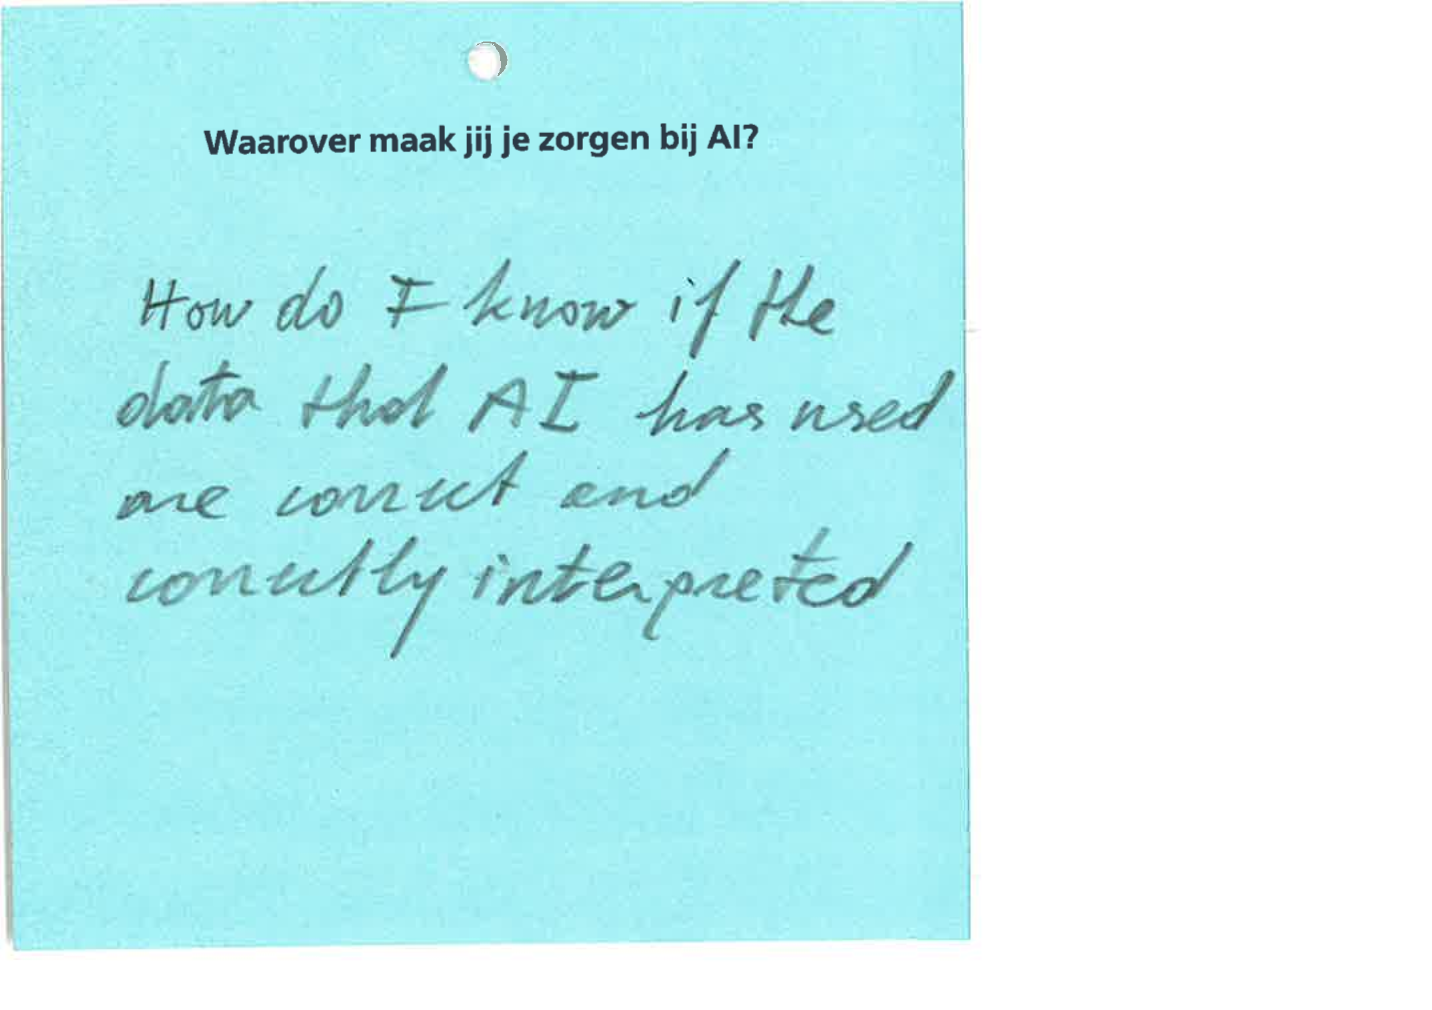 Waarover maak jij je zorgen bij AI?
How do I know if the
data that AI has used
are correct and
correctly interpreted